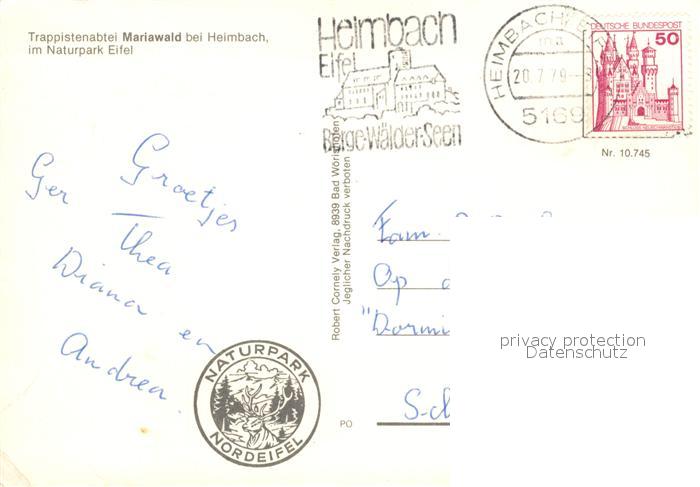 Trappistenabtei Mariawald bei Heimbach,
im Naturpark Eifel
Heimbach
Eifel
Berge-Wälder-Seen
HEIMBACH
20.7.79
5169
DEUTSCHE BUNDESPOST
50
Nr. 10.745
Groetjes
Ger
Thea
Diana en
Andrea.
NATURPARK
NORDEIFEL
Robert Cornely Verlag, 8939 Bad Wörishofen
Jeglicher Nachdruck verboten
Fam.
Op
PO
privacy protection
Datenschutz